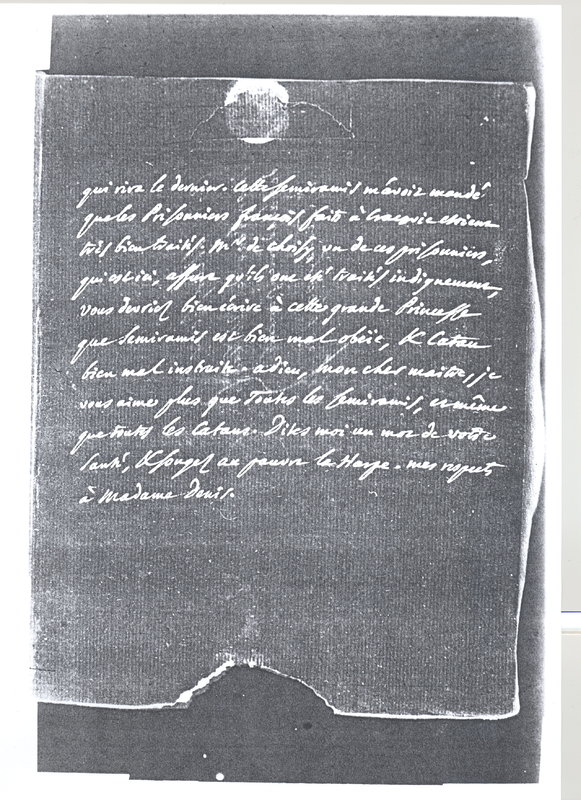 qui rira le dernier. Cette semiramis m'avoit mandé
que les Prisonniers françois faits à Cracovie etoient
très bien traités. Mr. de Choisy, un de ces prisonniers,
qui est ici, assure qu'ils ont été traités indignement,
vous devriez bien écrire à cette grande Princesse
que Semiramis est bien mal obéie, & Catau
bien mal instruite. adieu, mon cher maitre, je
vous aime plus que toutes les semiramis, et même
que toutes les Cataus. Dites moi un mot de votre
santé, & songez au pauvre la Harpe. mes respects
à Madame Denis.